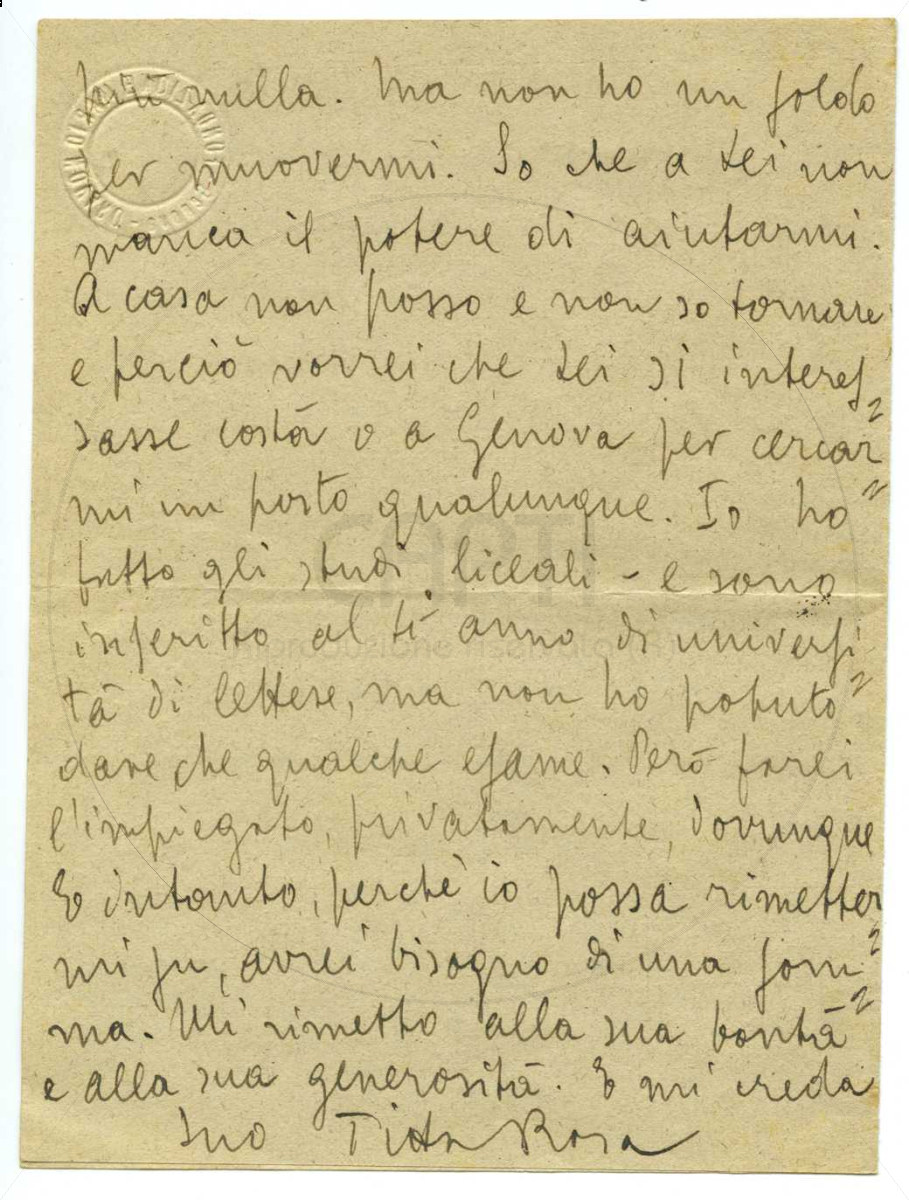 più nulla. Ma non ho un soldo
per muovermi. So che a Lei non
manca il potere di aiutarmi.
A casa non posso e non so tornare
e perciò vorrei che Lei si interes=
sasse costà o a Genova per cercar=
mi un posto qualunque. Io ho
fatto gli studi liceali - e sono
inscritto al anno di universi=
tà di lettere, ma non ho potuto
dare che qualche esame. Però farei
l'impiegato, privatamente, dovunque
E intanto, perchè io possa rimetter=
mi su, avrei bisogno di una som=
ma. Mi rimetto alla sua bontà
e alla sua generosità. E mi creda
Suo Titta Rosa